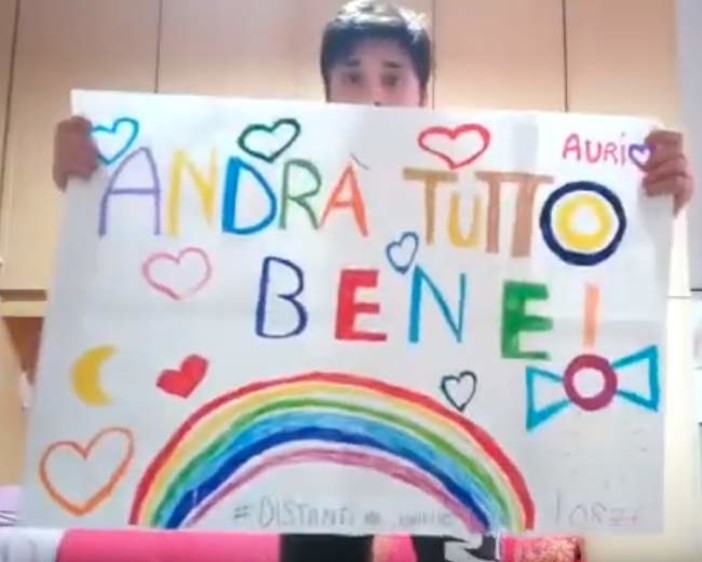 AURI
ANDRÀ TUTTO
BENE!
#DISTANTI